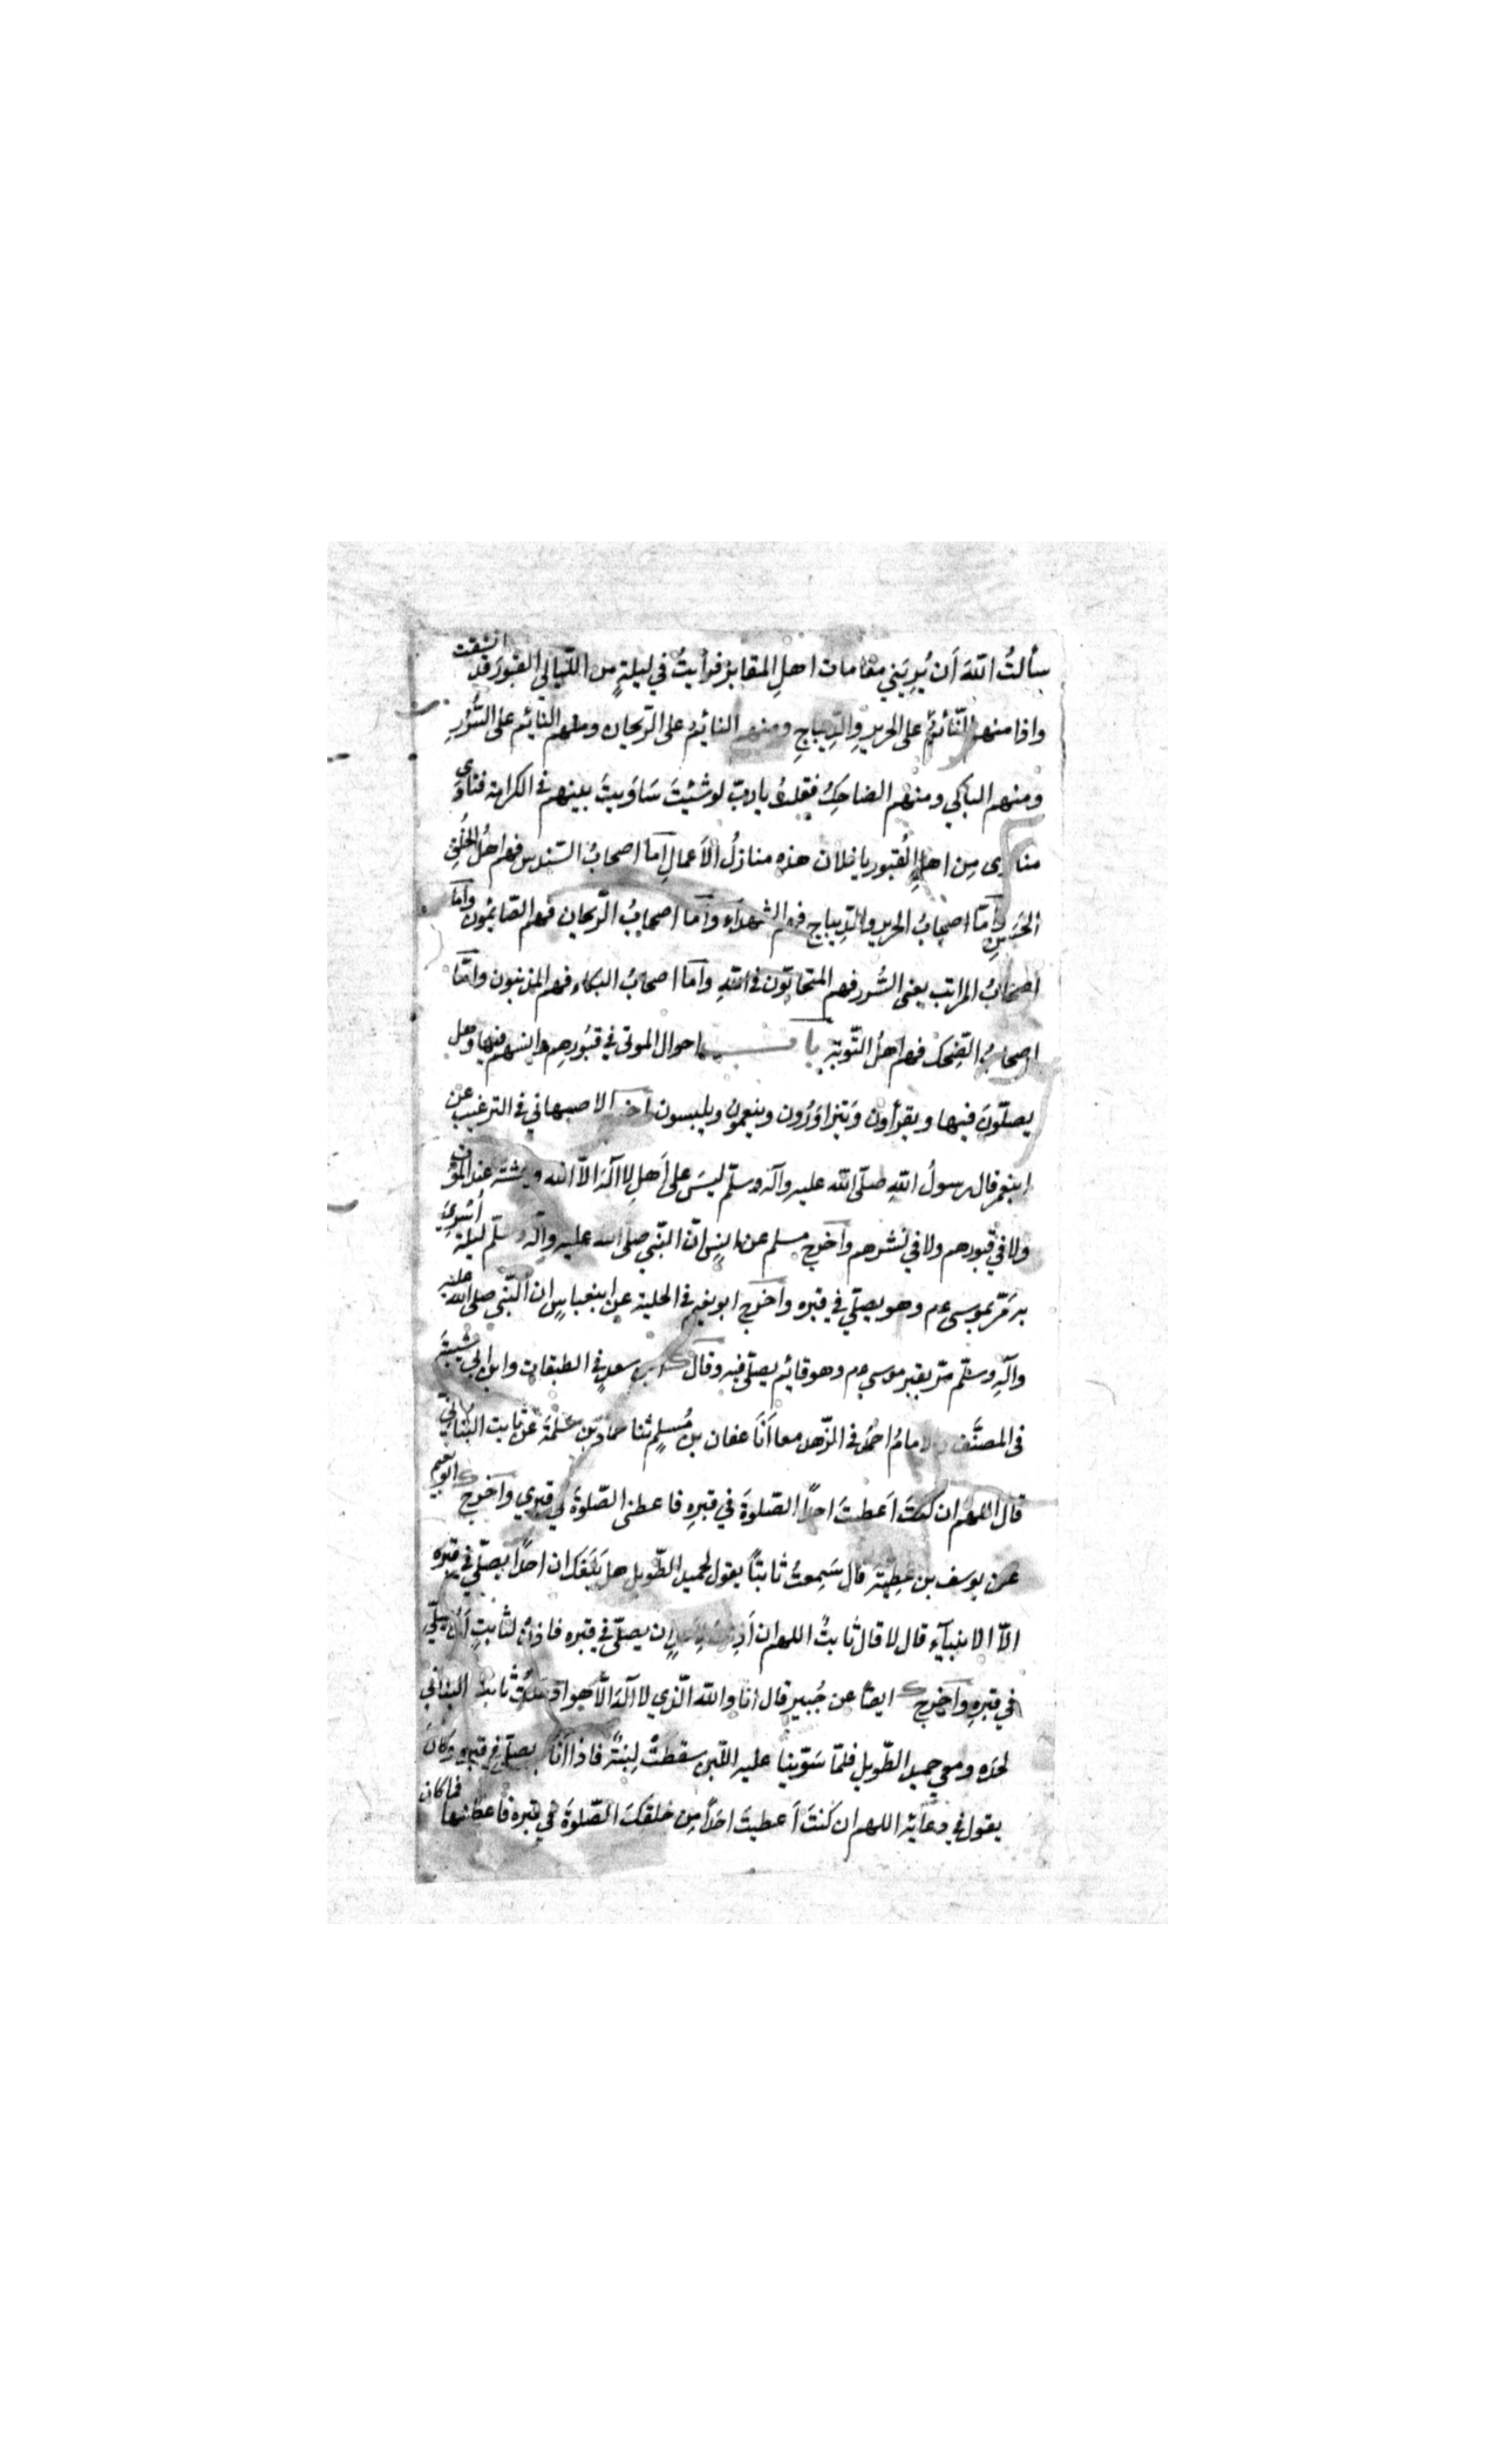 سألتُ اللّٰهَ أَن يُرِيَني مقامات اهلِ المقابر فرأيتُ في ليلةٍ من اللّيالي القبورَ قد انشقت
واذا منهم النّائمُ على الحريرِ والدِّيباجِ ومنهم النائمُ على الرّيحان ومنهم النائم على السُّرُرِ
ومنهم الباكي ومنهم الضاحِكُ فقلتُ يا ربّ لو شئتَ سَاوَيتَ بينهم في الكرامة فنادى
منادى مِن اهلِ القبور يا فلان هذه منازلُ الأَعمالِ امّا اصحابُ السّندس فهم اهلُ الخُلُقِ
الحَسَنِ وامّا اصحابُ الحرير والدِّيباج فهم الشّهدَاء وامّا اصحابُ الرّيحان فهم الصّائمُون وامّا
اصحابُ المراتب يعنى السُّرر فهم المتحابّون في اللّٰهِ وامّا اصحابُ البكاء فهم المذنبون وامّا
اصحابُ الضِّحك فهم اهلُ التّوبة باب احوال الموتى في قبُورهِم وانسهم فيها وهل
يصلّونَ فيها ويقرأون ويَتزاوَرُون وينعمون ويلبسون اخرج الاصبهاني في الترغيب عن
ابنعمر قال رسولُ اللّٰهِ صلّى اللّٰه عليه وآله وسلّم ليسَ على أَهلِ لا آلٰهَ الاّ اللّٰه وحشة عند الموت
ولا في قبورهم ولا في نشرهم واخرج مسلم عن انسٍ انّ النّبي صلى اللّٰه عليه وآله وسلّم ليلة أُسْرِيَ
به مَرّ بموسى عم وهو يصلّي في قبره واخرج ابو نعيم في الحلية عن ابنعباسٍ ان النّبي صلى اللّٰه عليه
وآلهِ وسلّم مرّ بقبر موسى عم وهو قائم يصلّى فيه وقال ابن سعدٍ في الطبقات وابن ابي شيبَة
في المصنَّف والامامُ احمدُ في الزّهد معا أَنَا عفان بن مُسلمٍ ثنا حمادُ بن سَلمَةَ عن ثابت البُنانيّ
قال اللهم ان كنتَ اَعطيتَ احدًا الصّلوةَ في قبرِه فاعطني الصّلوةَ في قبري واخرج ابو نعيم
عن يوسف بن عطيّة قال سَمِعتُ ثابتًا يقول لحميد الطّويل هل بَلَغَكَ ان احدًا يصلّي في قبره
الاّ الانبيآء قال لا قال ثابتُ اللهم ان أَذِنتَ لاحدٍ ان يصلّى في قبره فاذن لثابتٍ أَن يصلّي
في قبره واخرج ايضًا عن جُبير قال انا واللّٰه الّذي لا آلٰهَ الاّ هو ادخلتُ ثابت البناني
لحدَه ومعي حميد الطّويل فلمّا سَوّينا عليه اللّبِن سقطتْ لبِنةٌ فاذا أنَا يصلّي في قبره وكَانَ
يقول في دعآئه اللهم ان كنتَ أَعطيتَ احَدًا مِن خلقكَ الصّلوةَ في قبره فاعطنيها فما كان